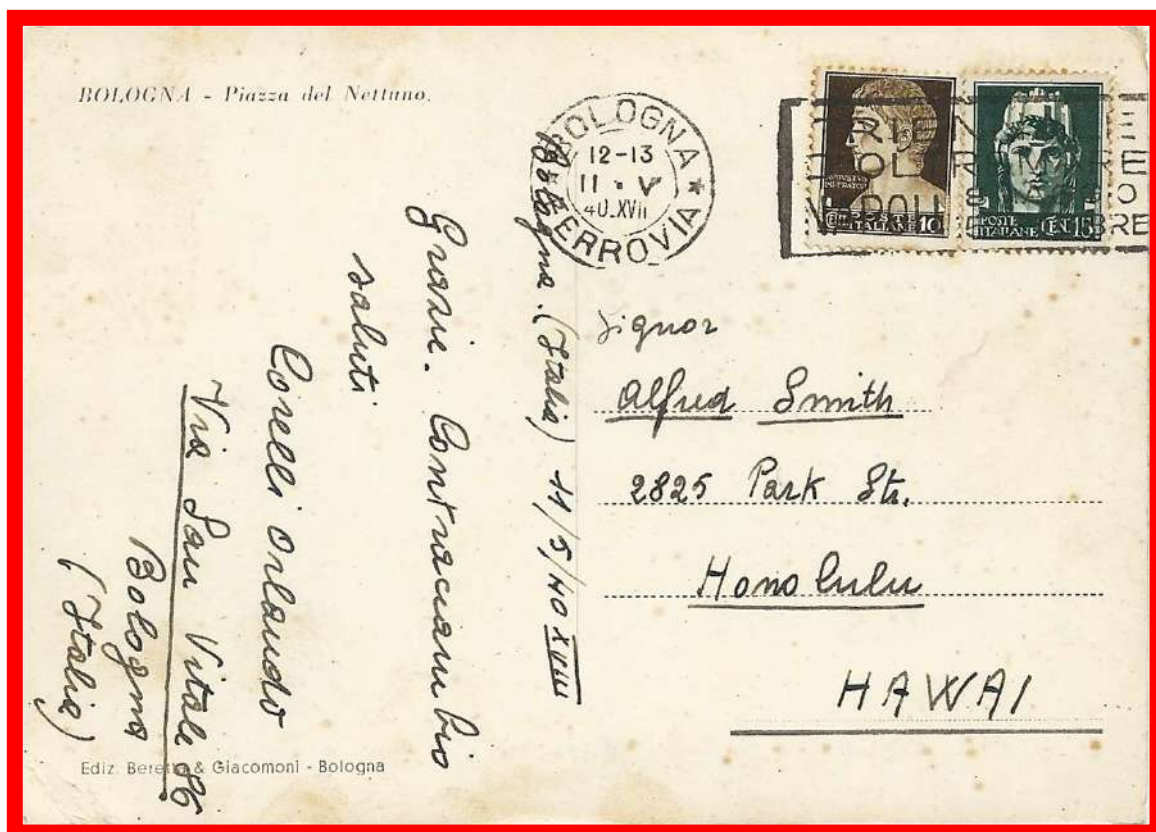 BOLOGNA - Piazza del Nettuno.
BOLOGNA
12-13
11 · V
40.XVII
FERROVIA
NAPOLI
AUGUSTVS
POSTE
ITALIANE 10
POSTE
ITALIANE CENT. 15
Bologna. (Italia) 11/5/40 XVIII
Grazie. Contraccambio
saluti
Corelli Orlando
Via San Vitale 86
Bologna
(Italia)
Signor
Alfred Smith
2825 Park Str.
Honolulu
HAWAI
Ediz. Beretta & Giacomoni - Bologna